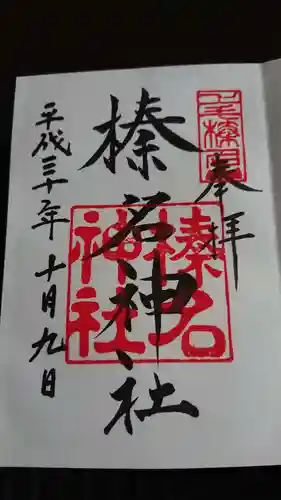 奉拝
榛名神社
平成三十年十月九日
榛名
神社